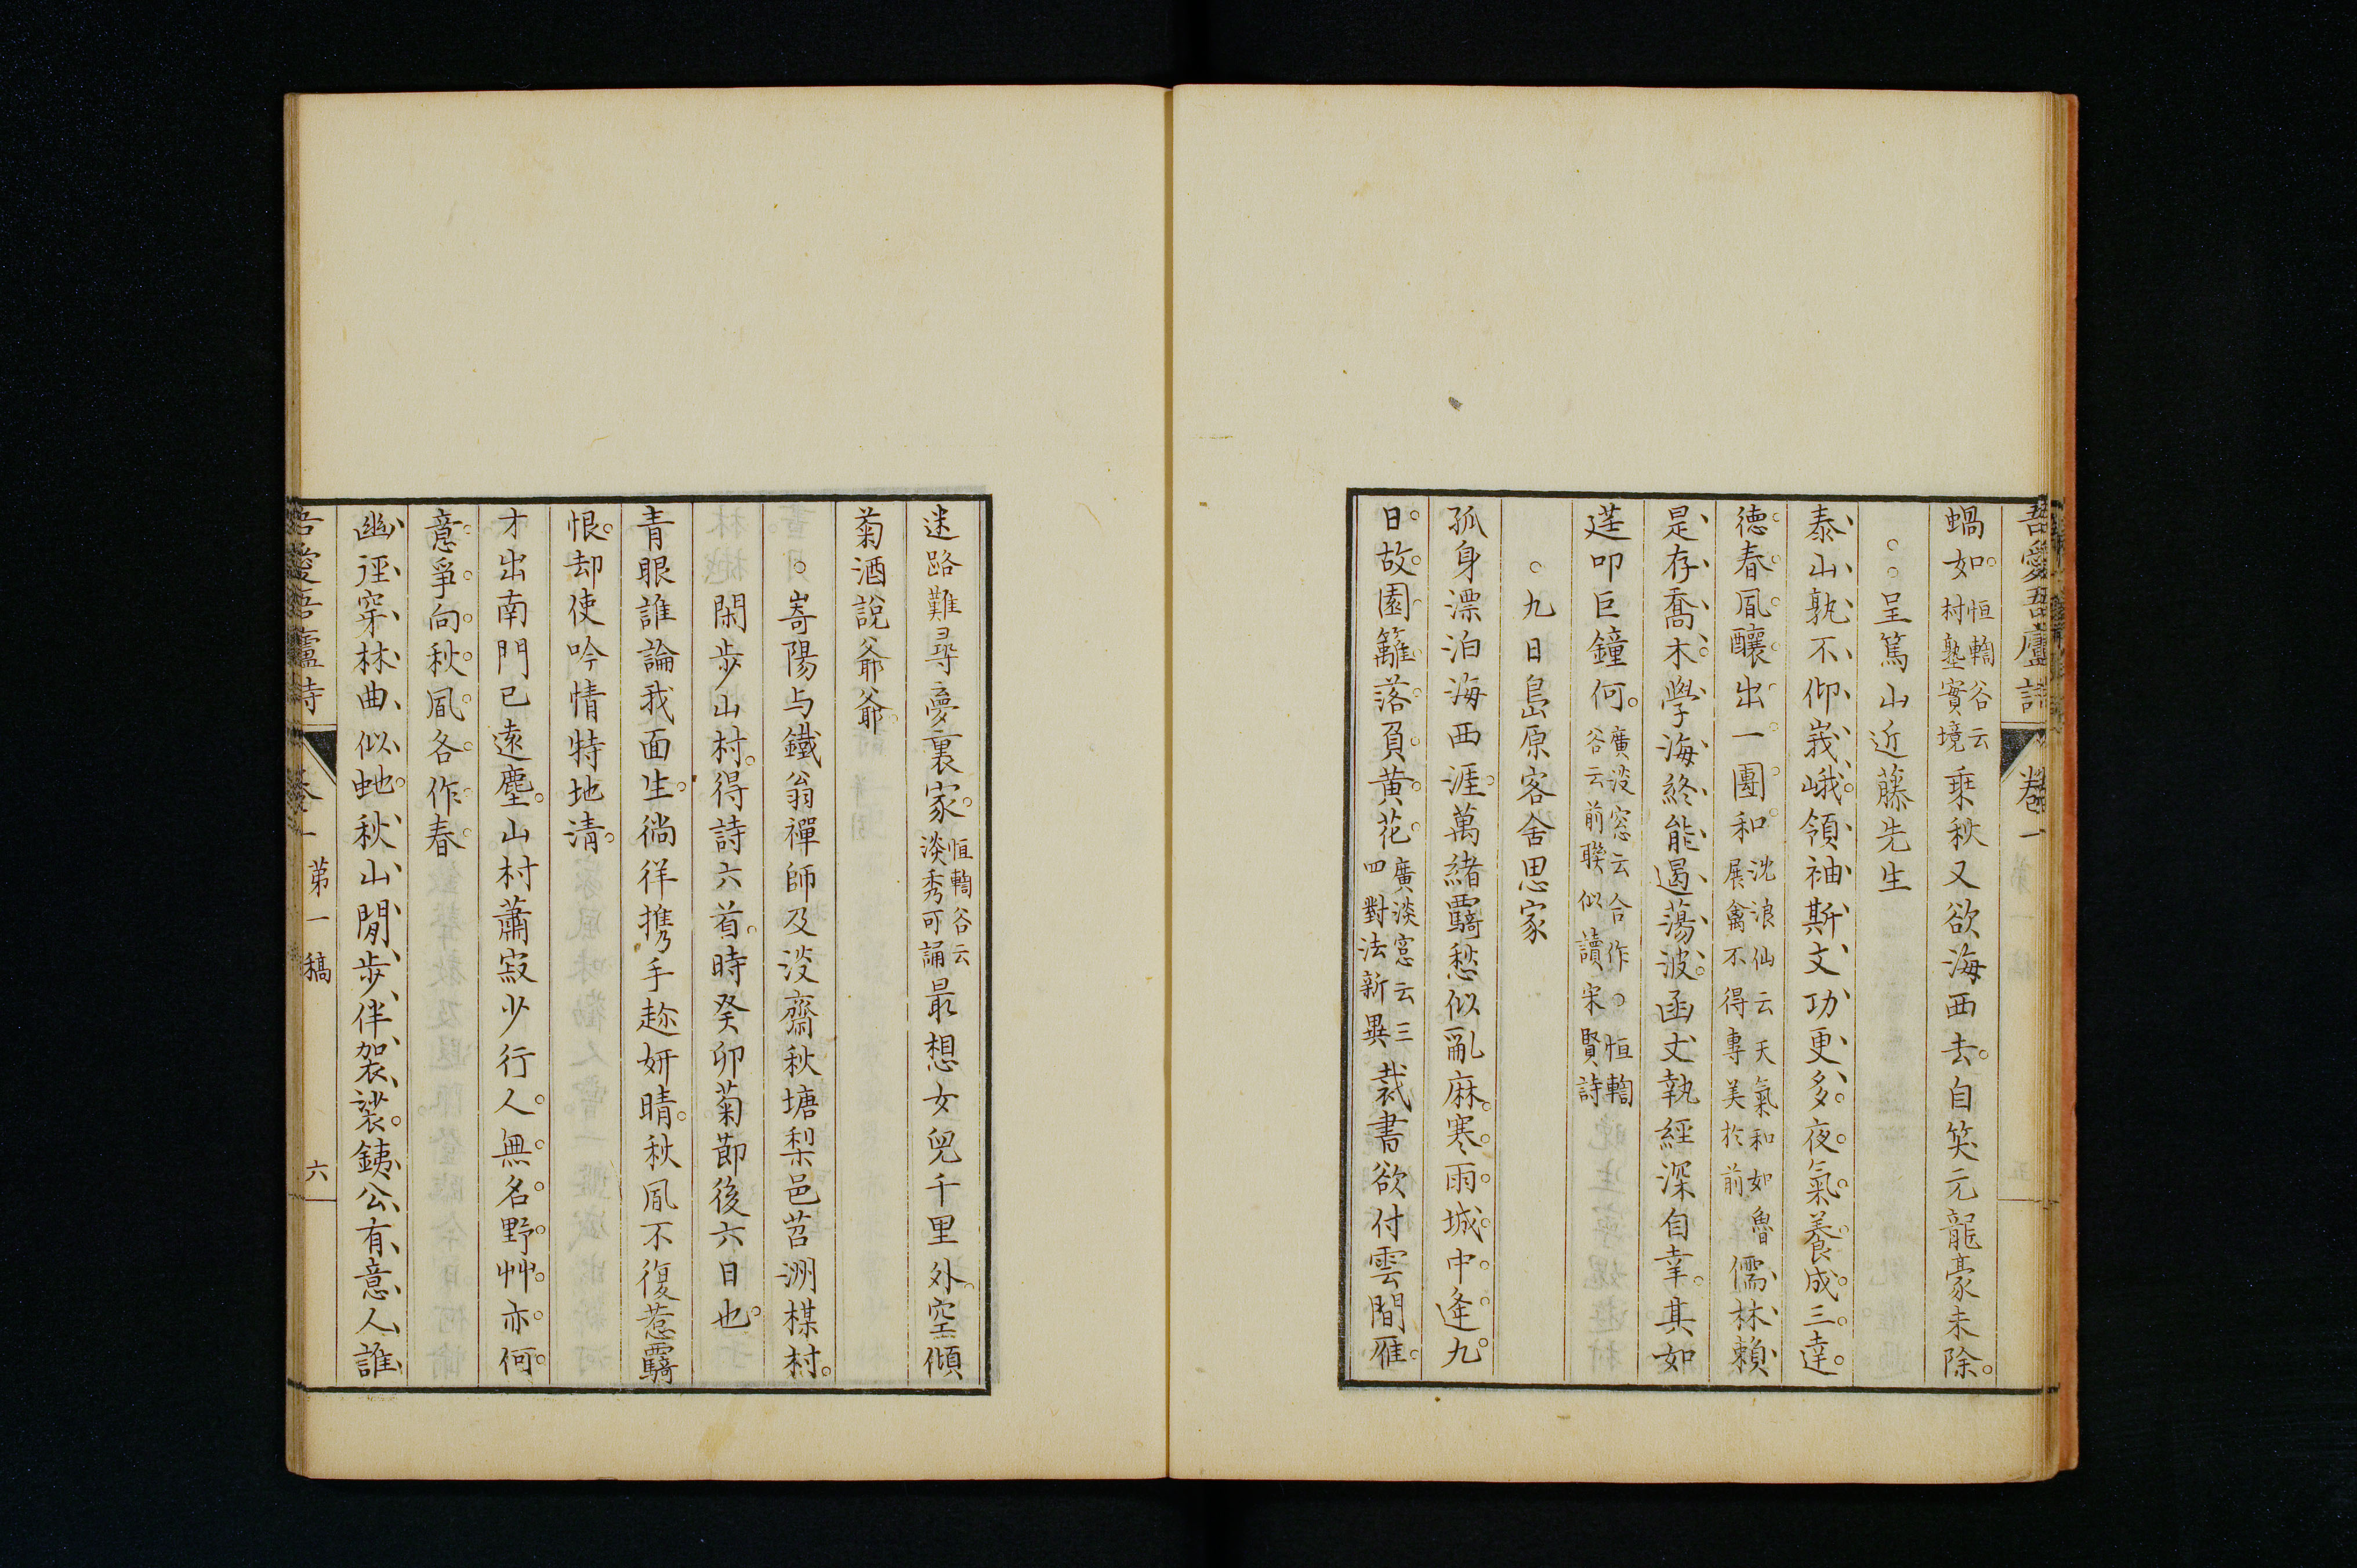 吾愛吾廬詩 卷一
蝸如恒軸谷云村塾實境乗秋又欲海西去自笑元龍豪未除
呈篤山近藤先生
泰山孰不仰峩峨領袖斯文功更多夜氣養成三達
徳春風釀出一團和沈浪仙云天氣和如魯展禽不得專美於前儒林頼
是存喬木學海終能遏蕩波函丈執經深自幸其如
莛叩巨鐘何廣淡窓云合作恒軸谷云前聯似讀宋賢詩
九日島原客舍思家
孤身漂泊海西涯萬緒羈愁似亂麻寒雨城中逢九
日故園籬落負黄花廣淡窓云三四對法新異裁書欲付雲間雁
迷路難尋夢裏家恒軸谷云淡秀可誦最想女兒千里外空傾
菊酒說爺爺
嵜陽与鐵翁禪師及淡齋秋塘梨邑苕洲楳村
閑歩山村得詩六首時癸卯菊節後六日也
青眼誰論我面生徜徉携手趂妍晴秋風不復惹羈
恨却使吟情特地清
才出南門已遠塵山村蕭寂少行人無名野艸亦何
意爭向秋風各作春
幽徑穿林曲似虵秋山閒歩伴袈裟銕公有意人誰
吾愛吾廬詩 卷一 苐一稿 六